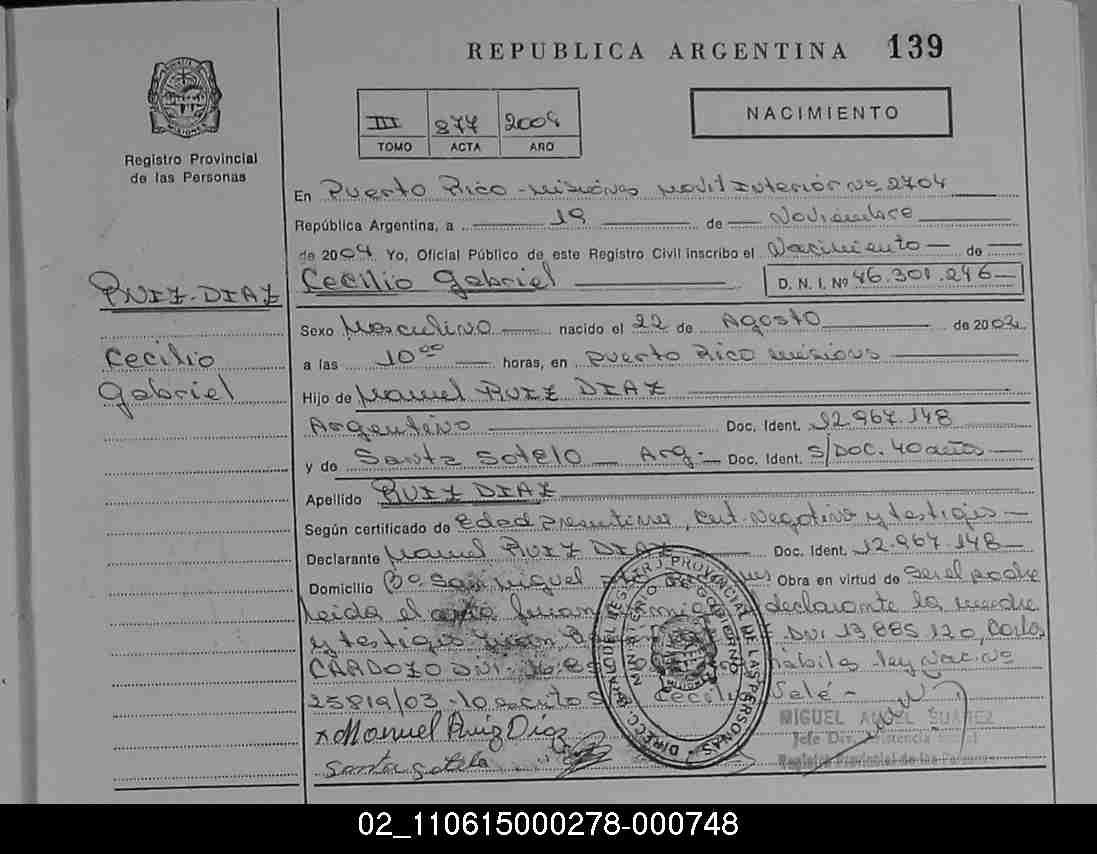 REPUBLICA ARGENTINA 139
PROVINCIA DE MISIONES
Registro Provincial
de las Personas
III 877 2004
TOMO ACTA AÑO
NACIMIENTO
En Puerto Rico - Misiones Movil Interior Nº 2704
República Argentina, a 19 de Noviembre
de 2004 Yo, Oficial Público de este Registro Civil inscribo el Nacimiento de
Cecilio Gabriel D. N. I. Nº 46.301.246
RUIZ-DIAZ
Cecilio
Gabriel
Sexo Masculino nacido el 22 de Agosto de 200
a las 10 00 horas, en Puerto Rico Misiones
Hijo de Manuel RUIZ DIAZ
Argentino Doc. Ident. 12.967.148
y de Santa Sotelo Arg. Doc. Ident. S/Doc. 40 años
Apellido RUIZ DIAZ
Según certificado de Edad Presuntiva, Cert. Negativo y testigos
Declarante Manuel RUIZ DIAZ Doc. Ident. 12.967.148
Domicilio Bº San Miguel Obra en virtud de Ser el padre
Leida el acta firman declarante la madre
y testigos Juan DNI 13.885.120, Carlos
CARDOZO DNI habiles ley Nac. Nº
25819/03 Cecilio Vale -
Manuel Ruiz Díaz
Santa Sotelo
DIRECC. GRAL. DEL REGISTRO PROVINCIAL DE LAS PERSONAS
MINISTERIO DE GOBIERNO
MIGUEL ANGEL SUAREZ
Jefe Div.
Registro Provincial de las Personas
02_110615000278-000748